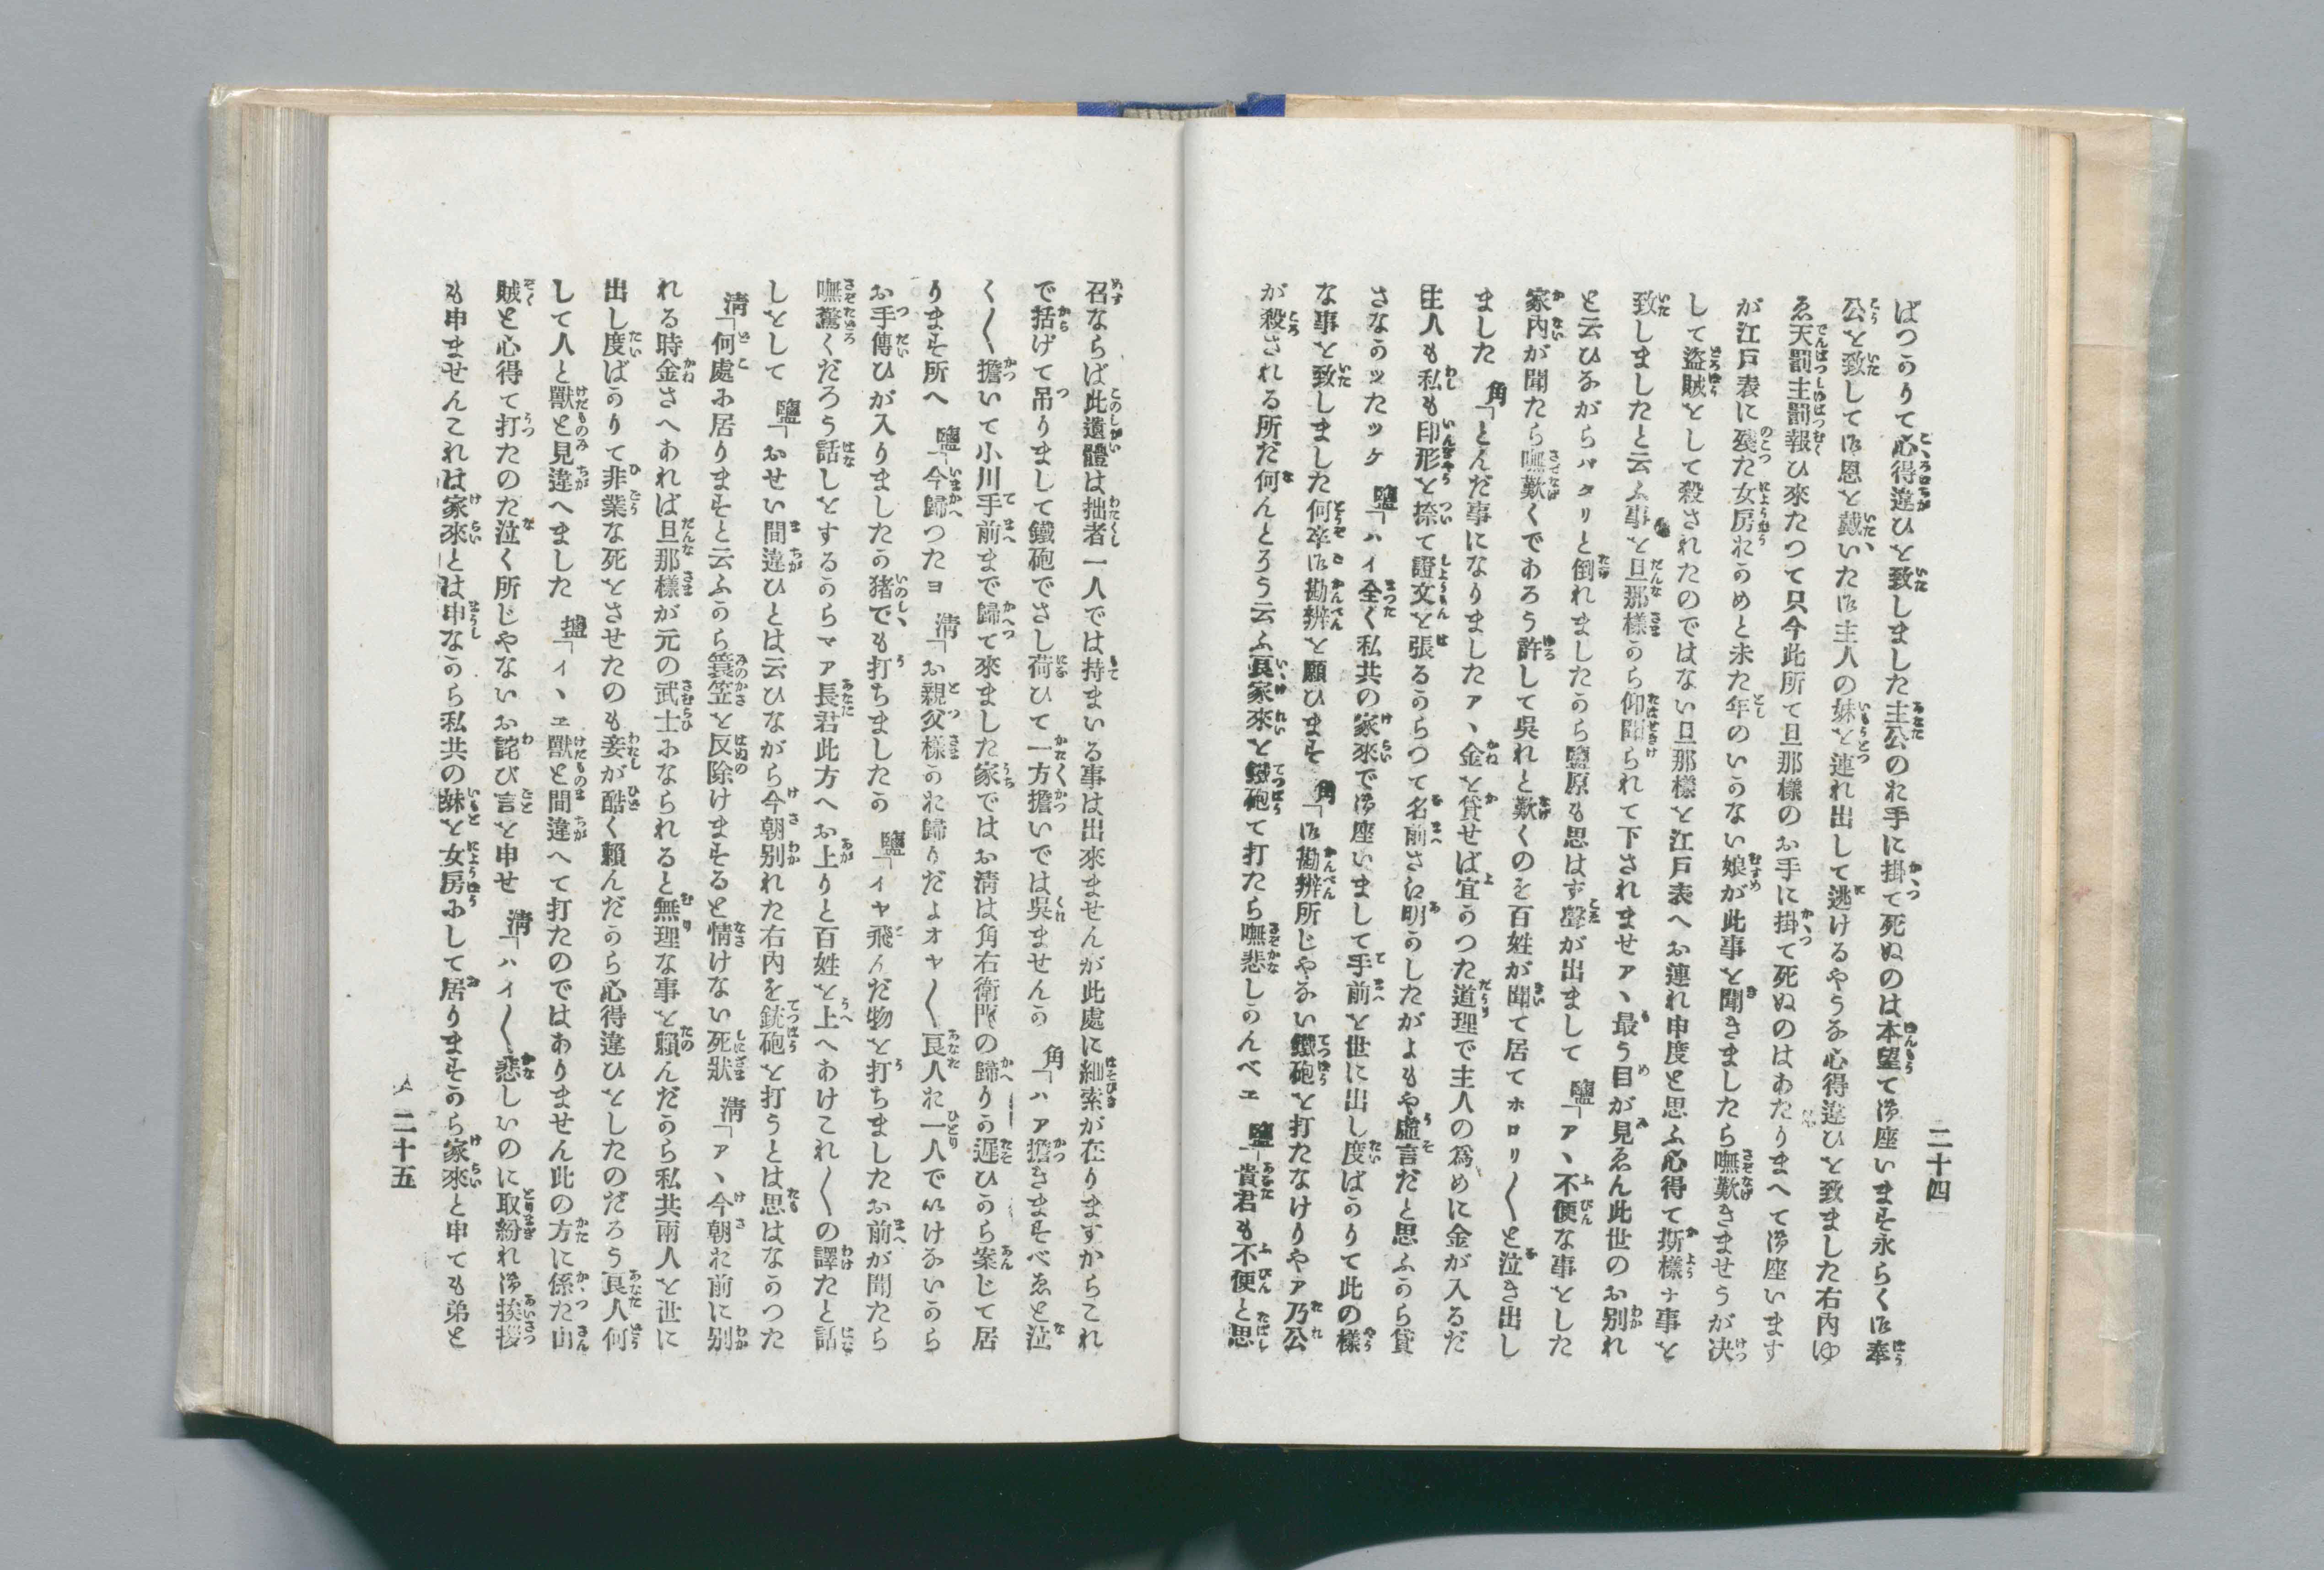 二十四
ばかりて心得違ひを致しました主公のお手に掛て死ぬのは本望て御座います永らく御奉
公を致して御恩を戴いた御主人の妹を連れ出して逃けるやうな心得違ひを致ました右内ゆ
ゑ天罰主罰報ひ來たつて只今此所て旦那樣のお手に掛て死ぬのはあたりまへて御座います
が江戸表に殘た女房おかめと未た年のいかない娘が此事を聞きましたら嘸歎きませうが决
して盜賊をして殺されたのではない旦那樣を江戸表へお連れ申度と思ふ心得て斯樣ナ事を
致しましたと云ふ事を旦那樣から仰聞られて下されませアヽ最う目が見ゑん此世のお別れ
と云ひながらハタリと倒れましたから鹽原も思はず聲が出まして 鹽「アヽ不便な事をした
家内が聞たら嘸歎くであろう許して呉れと歎くのを百姓が聞て居てホロリ〱と泣き出し
ました 角「とんだ事になりましたアヽ金を貸せば宜かつた道理で主人の爲めに金が入るだ
主人も私も印形を捺て證文を張るからつて名前さへ明かしたがよもや虛言だと思ふから貸
さなかッたッケ 鹽「ハイ全く私共の家來で御座いまして手前を世に出し度ばかりて此の樣
な事を致しました何卒御勘辨を願ひます 角「御勘辨所じやない鐵砲を打たなけりやア乃公
が殺される所だ何んとろう云ふ良家來を鐵砲て打たら嘸悲しかんべエ 鹽「貴君も不便と思
召ならば此遺體は拙者一人では持まいる事は出來ませんが此處に細索が在りますからこれ
で括げて吊りまして鐵砲でさし荷ひて一方擔いでは呉ませんか 角「ハア擔きますべゑと泣
く〱擔いて小川手前まで歸て來ました家ではお淸は角右衛門の歸りか遲ひから案じて居
ります所へ 鹽「今歸つたヨ 淸「お親父樣かお歸りだよオヤ〱良人お一人でいけないから
お手傳ひが入りましたか猪でも打ちましたか 鹽「イヤ飛んだ物を打ちましたお前が聞たら
嘸驚くだろう話しをするからマア長君此方へお上りと百姓を上へあけこれ〱の譯たと話
しをして 鹽「おせい間違ひとは云ひながら今朝別れた右内を銃砲を打うとは思はなかつた
淸「何處に居りますと云ふから簑笠を反除けまするを情けない死狀 淸「アヽ今朝お前に別
れる時金さへあれば旦那樣が元の武士になられると無理な事を賴んだから私共兩人を世に
出し度ばかりて非業な死をさせたのも妾が酷く賴んだから心得違ひをしたのだろう良人何
して人と獸と見違へました 鹽「イヽヱ獸と間違へて打たのではありません此の方に係た山
賊と心得て打たのた泣く所じやないお詫び言を申せ 淸「ハイ〱悲しいのに取紛れ御挨拶
も申ませんこれは家來とは申なから私共の妹を女房にして居りますから家來と申ても弟と
二十五